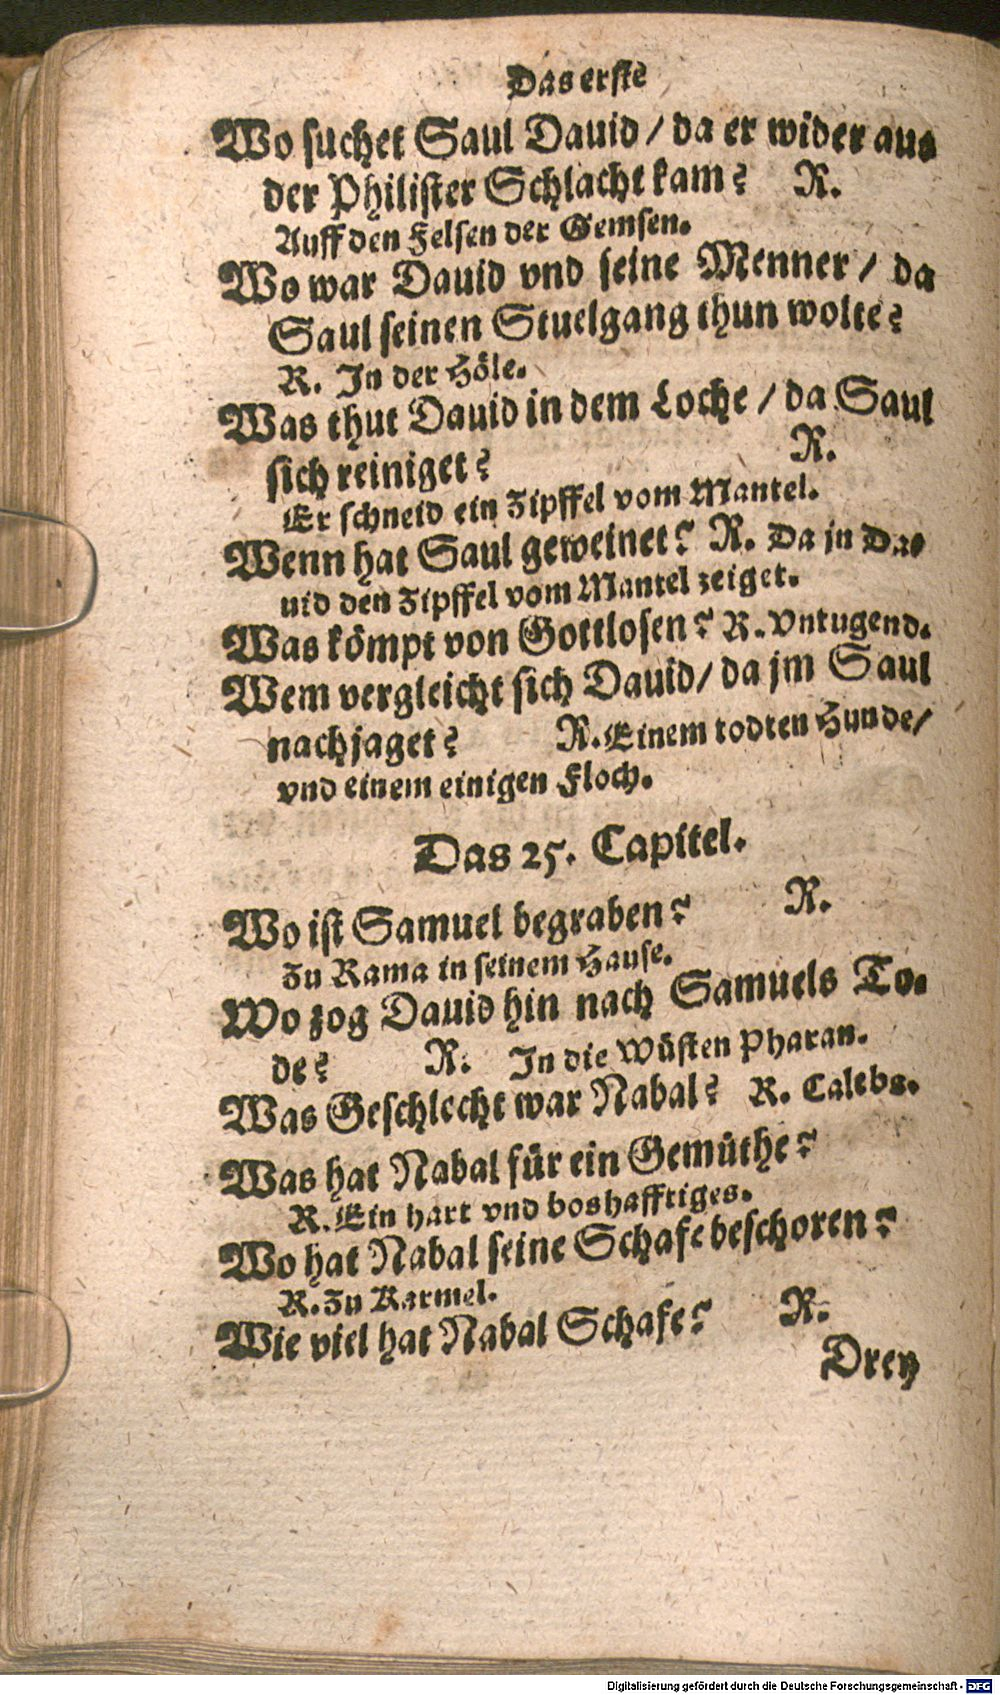 Das erste
Wo suchet Saul Dauid / da er wider aus
der Philister Schlacht kam? R.
Auff den Felsen der Gemsen.
Wo war Dauid vnd seine Menner / da
Saul seinen Stuelgang thun wolte?
R. In der Höle.
Was thut Dauid in dem Loche / da Saul
sich reiniget? R.
Er schneid ein Zipffel vom Mantel.
Wenn hat Saul geweinet? R. Da jn Da-
uid den Zipffel vom Mantel zeiget.
Was kömpt von Gottlosen? R. Vntugend.
Wem vergleicht sich Dauid / da jm Saul
nachjaget? R. Einem todten Hunde /
vnd einem einigen Floch.
Das 25. Capitel.
Wo ist Samuel begraben? R.
Zu Rama in seinem Hause.
Wo zog Dauid hin nach Samuels To-
de? R. In die Wüsten Pharan.
Was Geschlecht war Nabal? R. Calebs.
Was hat Nabal für ein Gemüthe?
R. Ein hart vnd boshafftiges.
Wo hat Nabal seine Schafe beschoren?
R. Zu Karmel.
Wie viel hat Nabal Schafe? R.
Drey
Digitalisierung gefördert durch die Deutsche Forschungsgemeinschaft - DFG